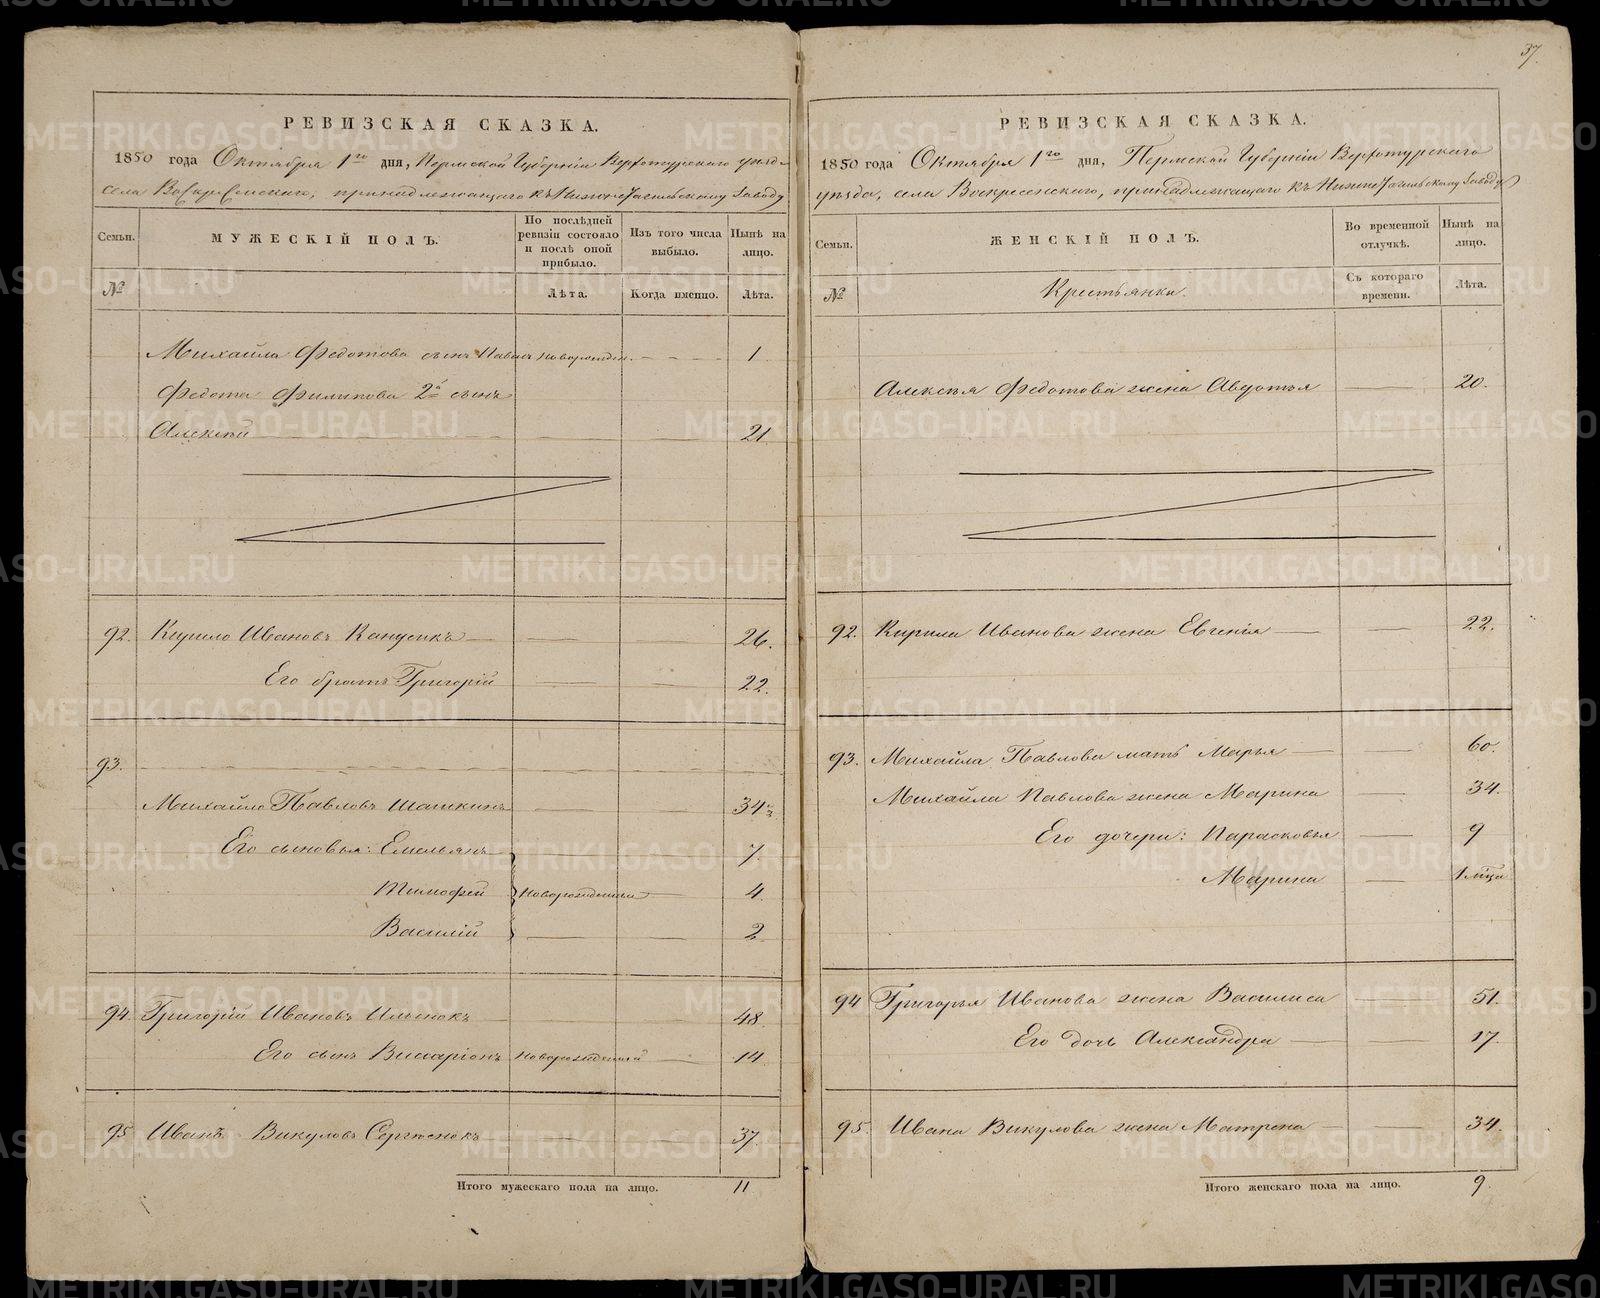 37.
РЕВИЗСКАЯ СКАЗКА.
1850 года Октября 1го дня, Пермской Губерніи Верхотурскаго уѣзда
села Воскресенскаго, принадлежащаго къ НижнеТагильскому Заводу
Семьи.
МУЖЕСКІЙ ПОЛЪ.
По послѣдней ревизіи состояло и послѣ оной прибыло.
Изъ того числа выбыло.
Нынѣ на лицо.
№
Лѣта.
Когда именно.
Лѣта.
Михайла Федотова сынъ Павелъ новорожден. 1
Федота Филипова 2й сынъ
Алексѣй 21
92. Кирило Ивановъ Канусикъ 26.
Его братъ Григорій 22.
93.
Михайло Павловъ Шашкинъ 34½
Его сыновья: Емельянъ 7.
Тимофей новорожденныя 4.
Василій 2
94. Григорій Ивановъ Ильенокъ 48.
Его сынъ Виссаріонъ новорожденной 14.
95 Иванъ Викуловъ Сергѣенокъ 37.
Итого мужескаго пола на лицо. 11
РЕВИЗСКАЯ СКАЗКА.
1850 года Октября 1го дня, Пермской Губерніи Верхотурскаго
уѣзда, села Воскресенскаго, принадлежащаго къ НижнеТагильскому Заводу
Семьи.
ЖЕНСКІЙ ПОЛЪ.
Во временной отлучкѣ.
Нынѣ на лицо.
№
Крестьянки.
Съ котораго времени.
Лѣта.
Алексѣя Федотова жена Авдотья 20.
92. Кирила Иванова жена Евгенія 22.
93. Михайла Павлова мать Марья 60.
Михайла Павлова жена Марина 34.
Его дочери: Парасковья 9
Марина 1 мѣся
94 Григорья Иванова жена Василиса 51.
Его дочь Александра 17.
95. Ивана Викулова жена Матрена 34.
Итого женскаго пола на лицо. 9.
METRIKI.GASO-URAL.RU